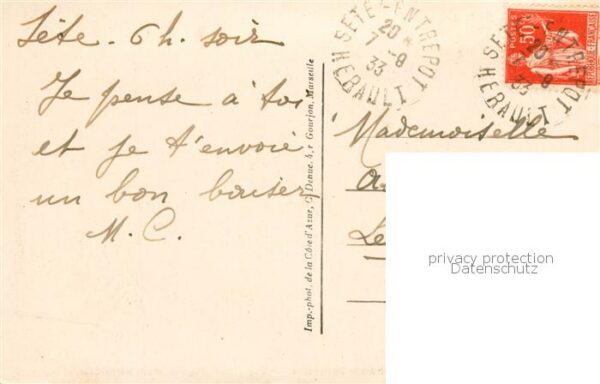 Sète - 6 h. soir
Je pense à toi
et je t'envoie
un bon baiser
M. C.
Imp.-phot. de la Côte d'Azur, C. Danue, 4, r. Gourjon, Marseille
SETE-ENTREPOT
20 *
7 -8
33
HERAULT
SETE-ENTREPOT
20 *
7 -8
33
HERAULT
POSTES
50c
Mademoiselle
Le
privacy protection
Datenschutz